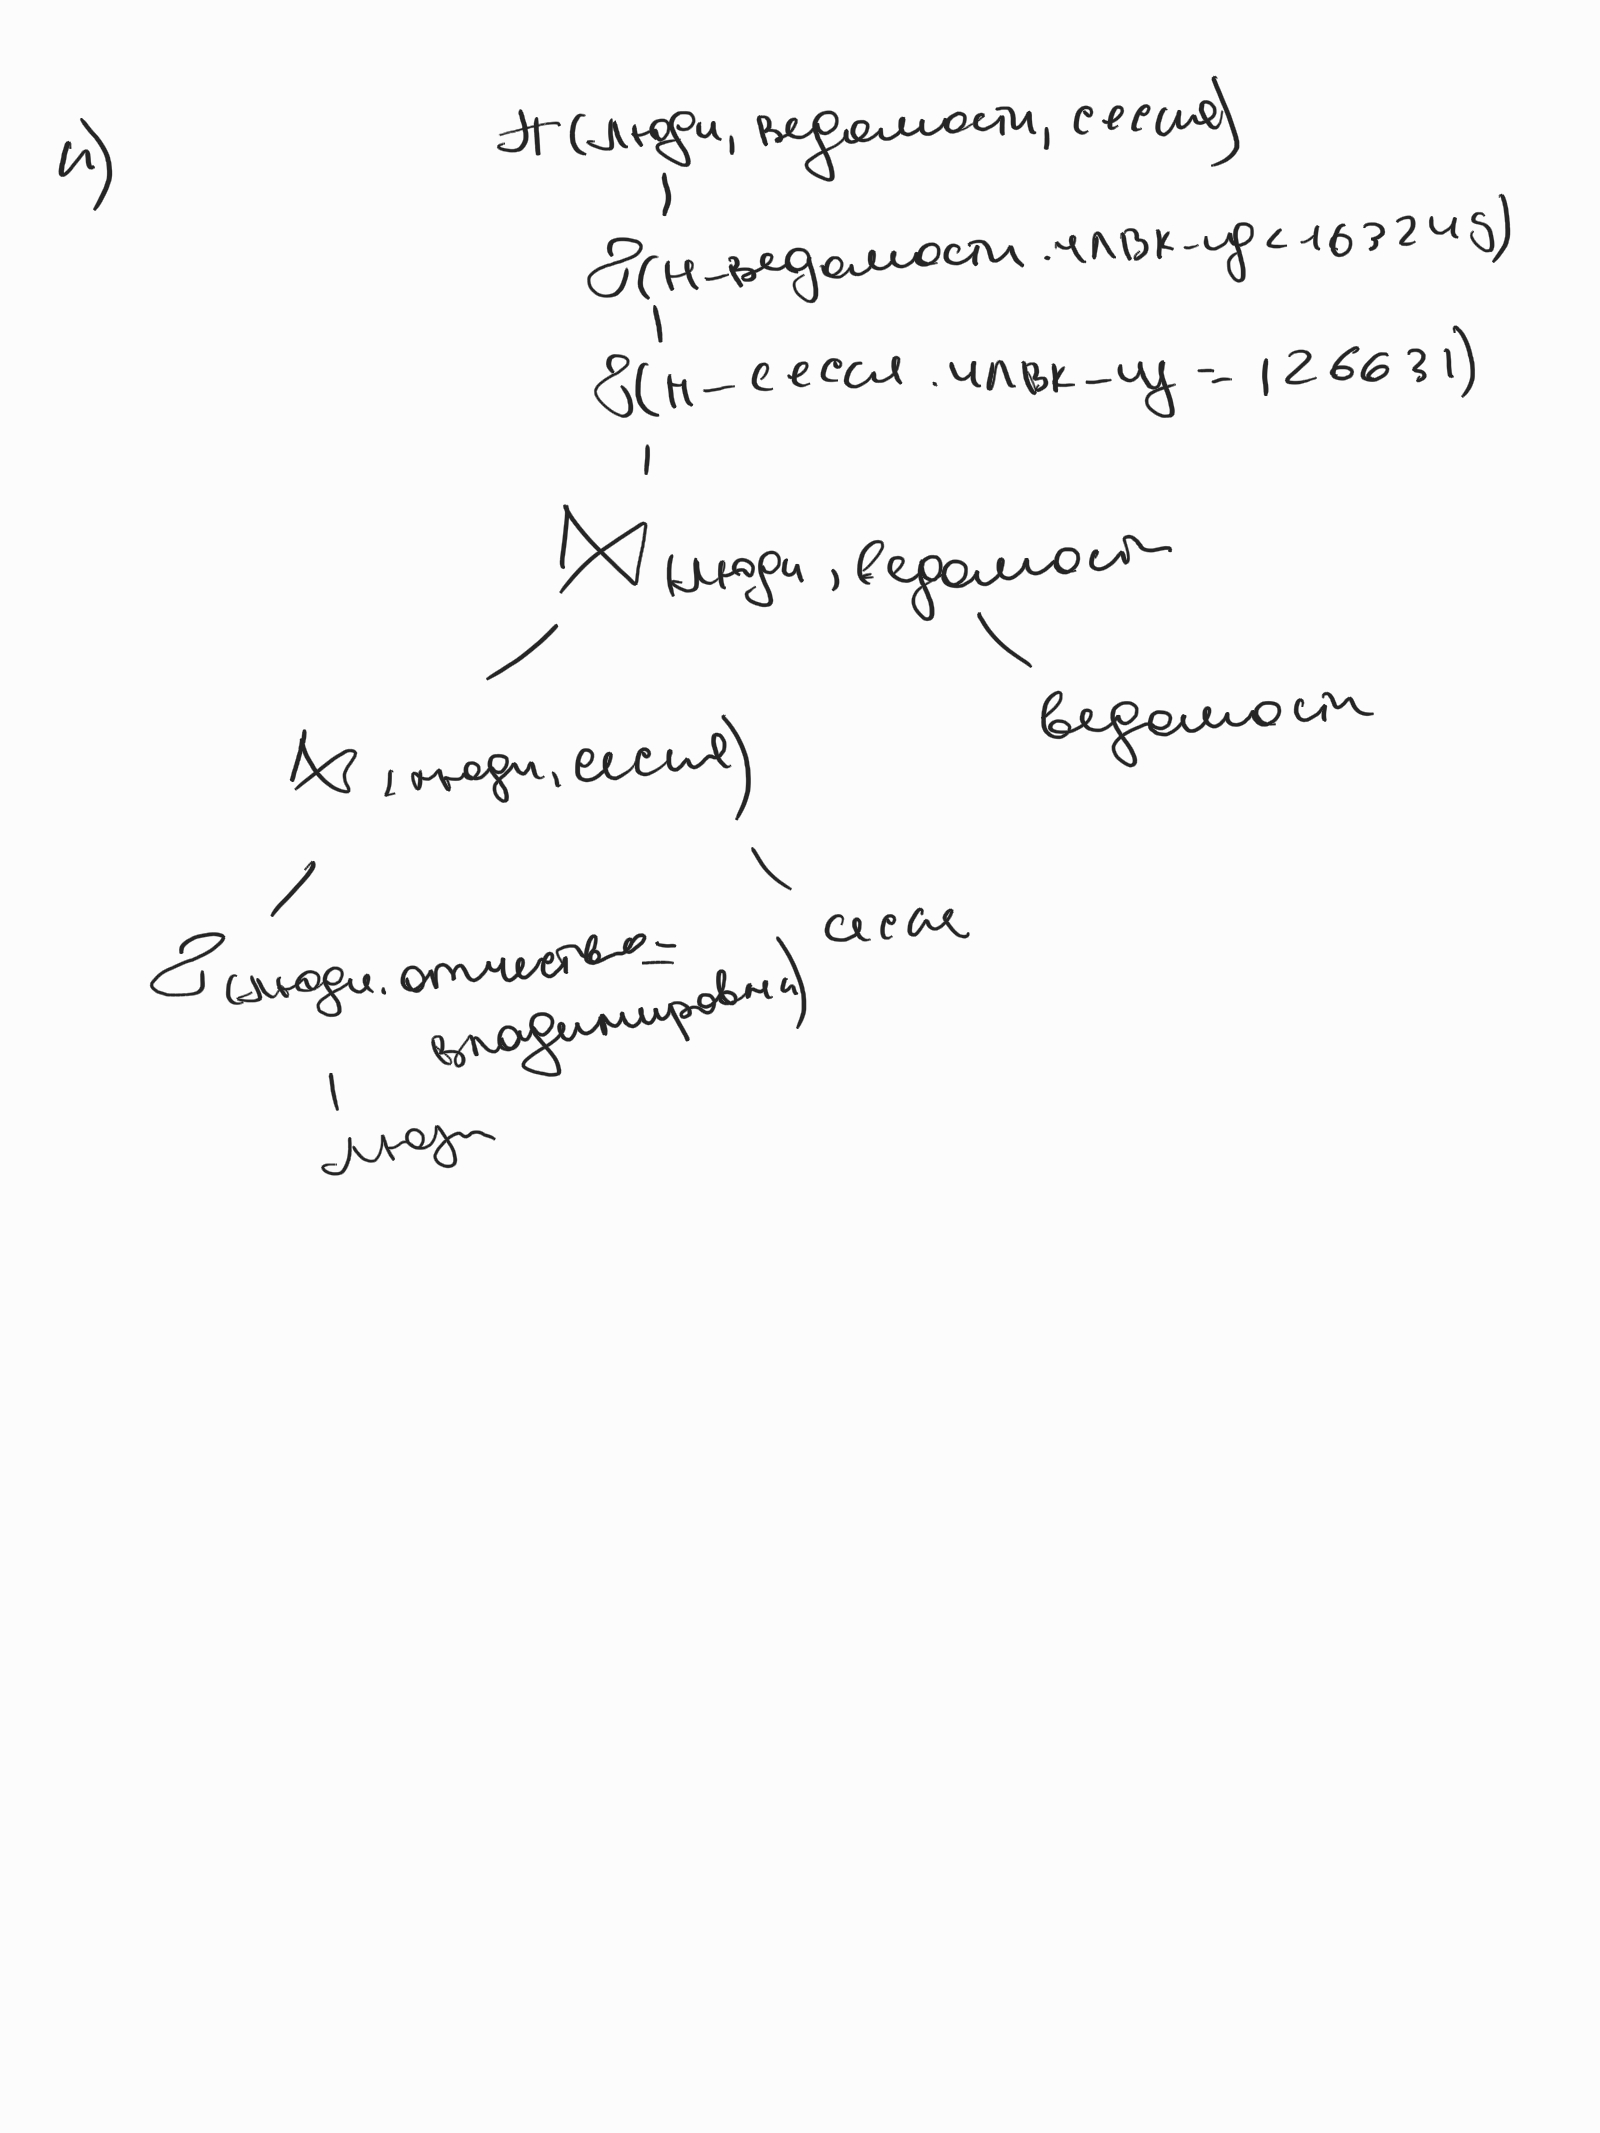 и)
π(люди, ведомости, сессия)
σ(н-ведомости.члвк-ид < 163249)
σ(н-сессия.члвк-ид = 126631)
⋈(люди, ведомости
ведомости
⋈(люди, сессия)
сессия
σ(люди.отчество =
владимировна)
люди